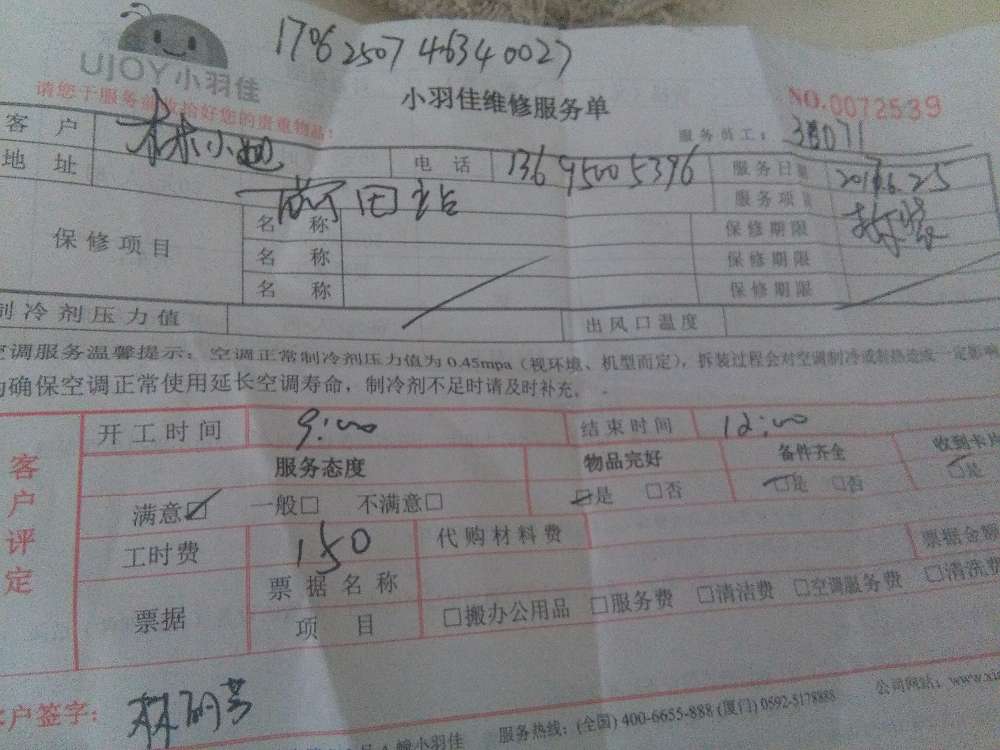 1706250746340027
UJOY小羽佳
请您于服务前收拾好您的贵重物品:
小羽佳维修服务单
NO.0072539
服务员工:
客 户 林小姐 电 话 13695005396 服务日期 2017.6.25
地 址 田 站 服务项目
保修项目 名 称 保修期限
名 称 保修期限
名 称 保修期限
制冷剂压力值 出风口温度
空调服务温馨提示:空调正常制冷剂压力值为0.45mpa(视环境、机型而定),拆装过程会对空调制冷或制热造成一定影响
为确保空调正常使用延长空调寿命,制冷剂不足时请及时补充。
客户评定
开工时间 9:00 结束时间 12:00
服务态度 物品完好 备件齐全 收到卡片
满意☑ 一般□ 不满意□ ☑是 □否 ☑是 □否 ☑是
工时费 150 代购材料费
票据 票据名称 票据金额
项 目 □搬办公用品 □服务费 □清洁费 □空调服务费 □清洗费
客户签字: 林丽芳
小羽佳 服务热线:(全国)400-6655-888 (厦门)0592-5178888 公司网站:www.xi